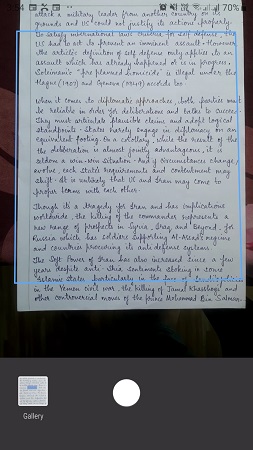 3:54
70%
attack a military leader from another country on its
grounds and US could not justify its actions properly.
To satisfy international laws criteria for self defense, the
US had to act to prevent an imminent assault. However
the article's definition of self defense only applies to an
assault which has already happened or is in progress.
Soleimani's "pre planned homicide" is illegal under the
Hague (1907) and Geneva (1949) accords too.
When it comes to diplomatic approaches, both parties must
be reliable in order for deliberations and talks to succeed.
They must articulate plausible claims and adopt logical
standpoints. States rarely engage in diplomacy on an
equivalent footing. As a corollary, while the result of the
the deliberation is almost jointly advantageous, it is
seldom a win-win situation. And if circumstances change/
evolve, each state's requirements and contentment may
shift. It is unlikely that US and Iran may come to
proper terms with each other.
Though its a tragedy for Iran and has implications
worldwide, the killing of the commander represents a
new range of prospects in Syria, Iraq and beyond. For
Russia which has soldiers supporting Al-Assad's regime
and countries procuring its anti defense systems.
The Soft Power of Iran has also increased since a few
years despite anti-Shia sentiments stoking in some
Islamic states particularly in the
in the Yemen civil war, the killing of Jamal Khashoggi and
other controversial moves of the prince Mohammad Bin Salman.
Gallery